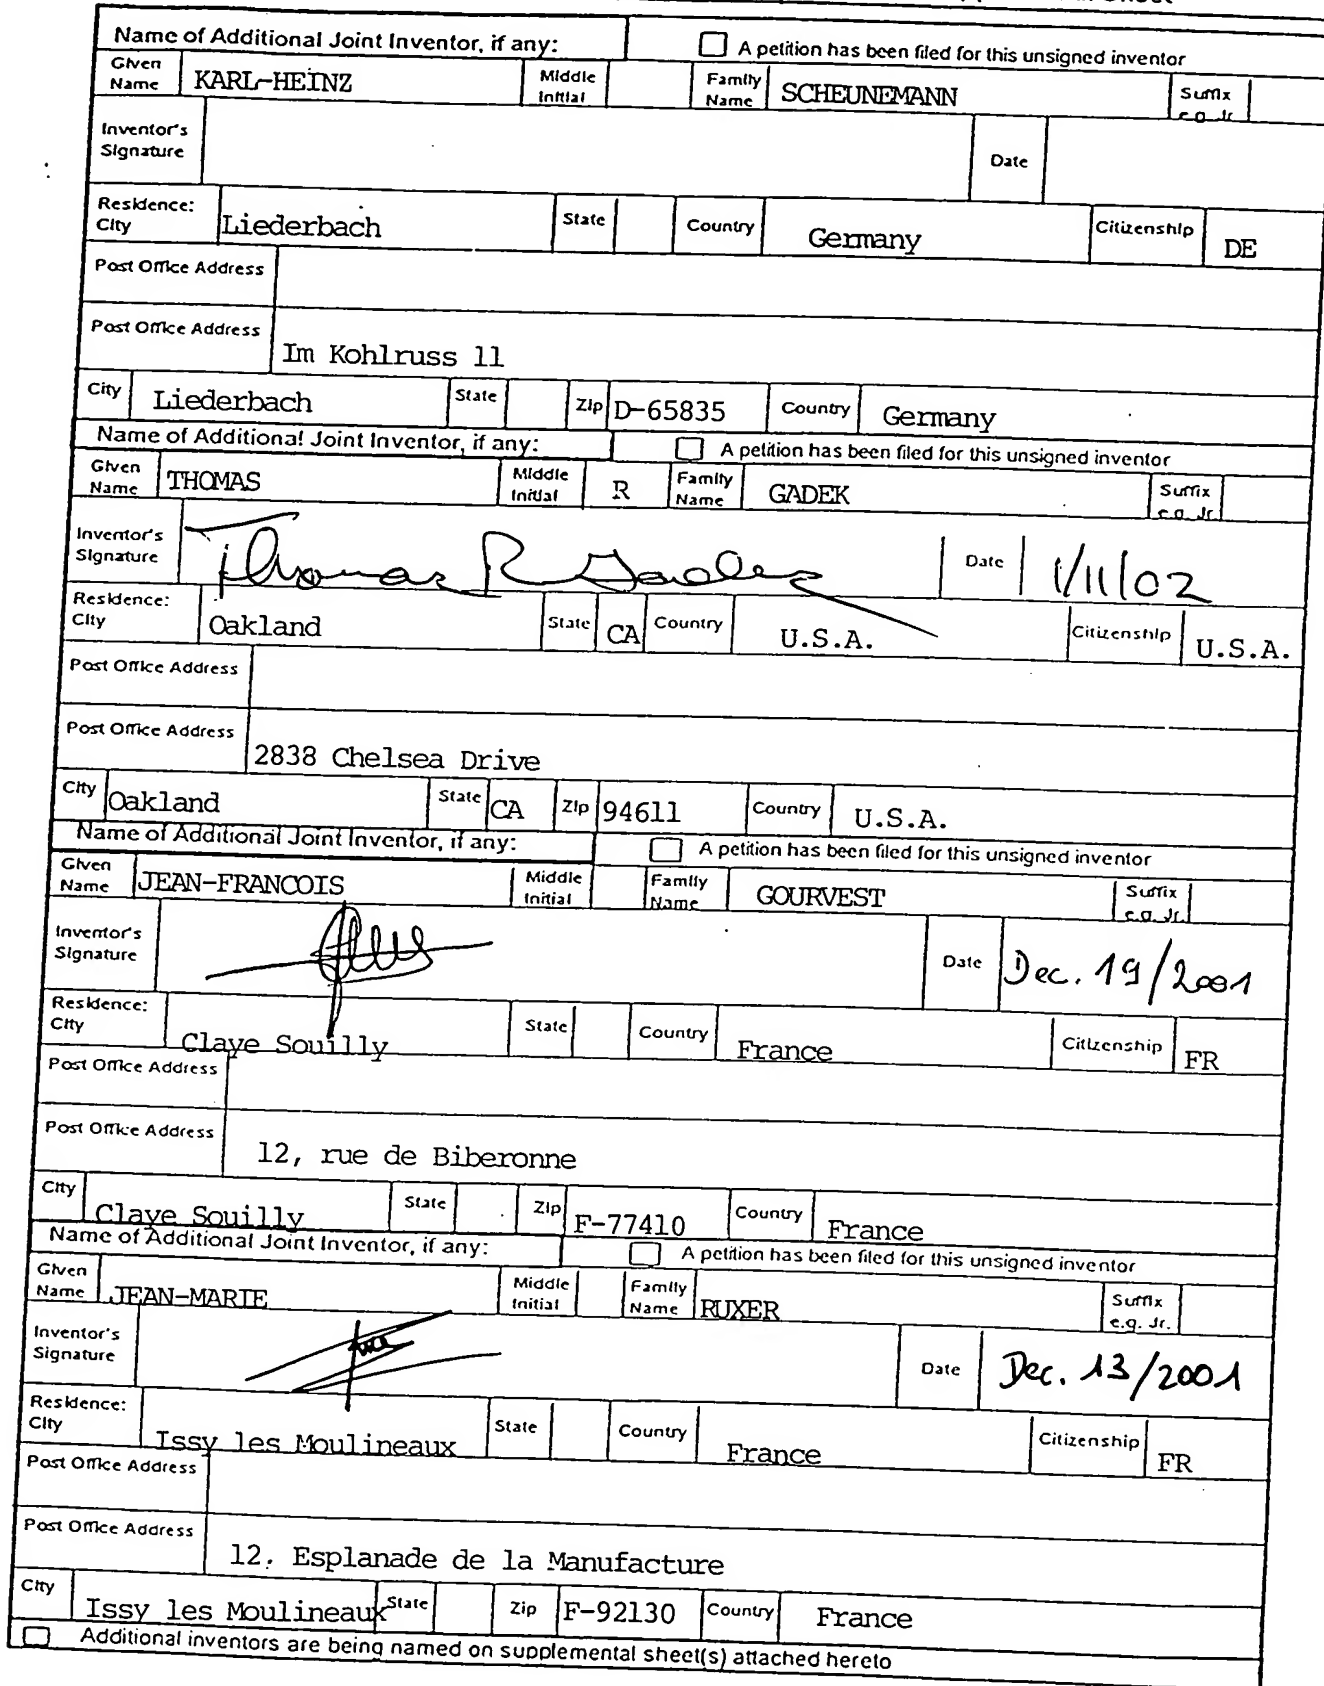 Name of Additional Joint Inventor, if any: A petition has been filed for this unsigned inventor
Given Name KARL-HEINZ Middle Initial Family Name SCHEUNEMANN Suffix e.g. Jr.
Inventor's Signature Date
Residence: City Liederbach State Country Germany Citizenship DE
Post Office Address
Post Office Address Im Kohlruss 11
City Liederbach State Zip D-65835 Country Germany
Name of Additional Joint Inventor, if any: A petition has been filed for this unsigned inventor
Given Name THOMAS Middle Initial R Family Name GADEK Suffix e.g. Jr.
Inventor's Signature Thomas R Gadek Date 1/11/02
Residence: City Oakland State CA Country U.S.A. Citizenship U.S.A.
Post Office Address
Post Office Address 2838 Chelsea Drive
City Oakland State CA Zip 94611 Country U.S.A.
Name of Additional Joint Inventor, if any: A petition has been filed for this unsigned inventor
Given Name JEAN-FRANCOIS Middle Initial Family Name GOURVEST Suffix e.g. Jr.
Inventor's Signature Date Dec. 19/2001
Residence: City Claye Souilly State Country France Citizenship FR
Post Office Address
Post Office Address 12, rue de Biberonne
City Claye Souilly State Zip F-77410 Country France
Name of Additional Joint Inventor, if any: A petition has been filed for this unsigned inventor
Given Name JEAN-MARIE Middle Initial Family Name RUXER Suffix e.g. Jr.
Inventor's Signature Date Dec. 13/2001
Residence: City Issy les Moulineaux State Country France Citizenship FR
Post Office Address
Post Office Address 12. Esplanade de la Manufacture
City Issy les Moulineaux State Zip F-92130 Country France
Additional inventors are being named on supplemental sheet(s) attached hereto